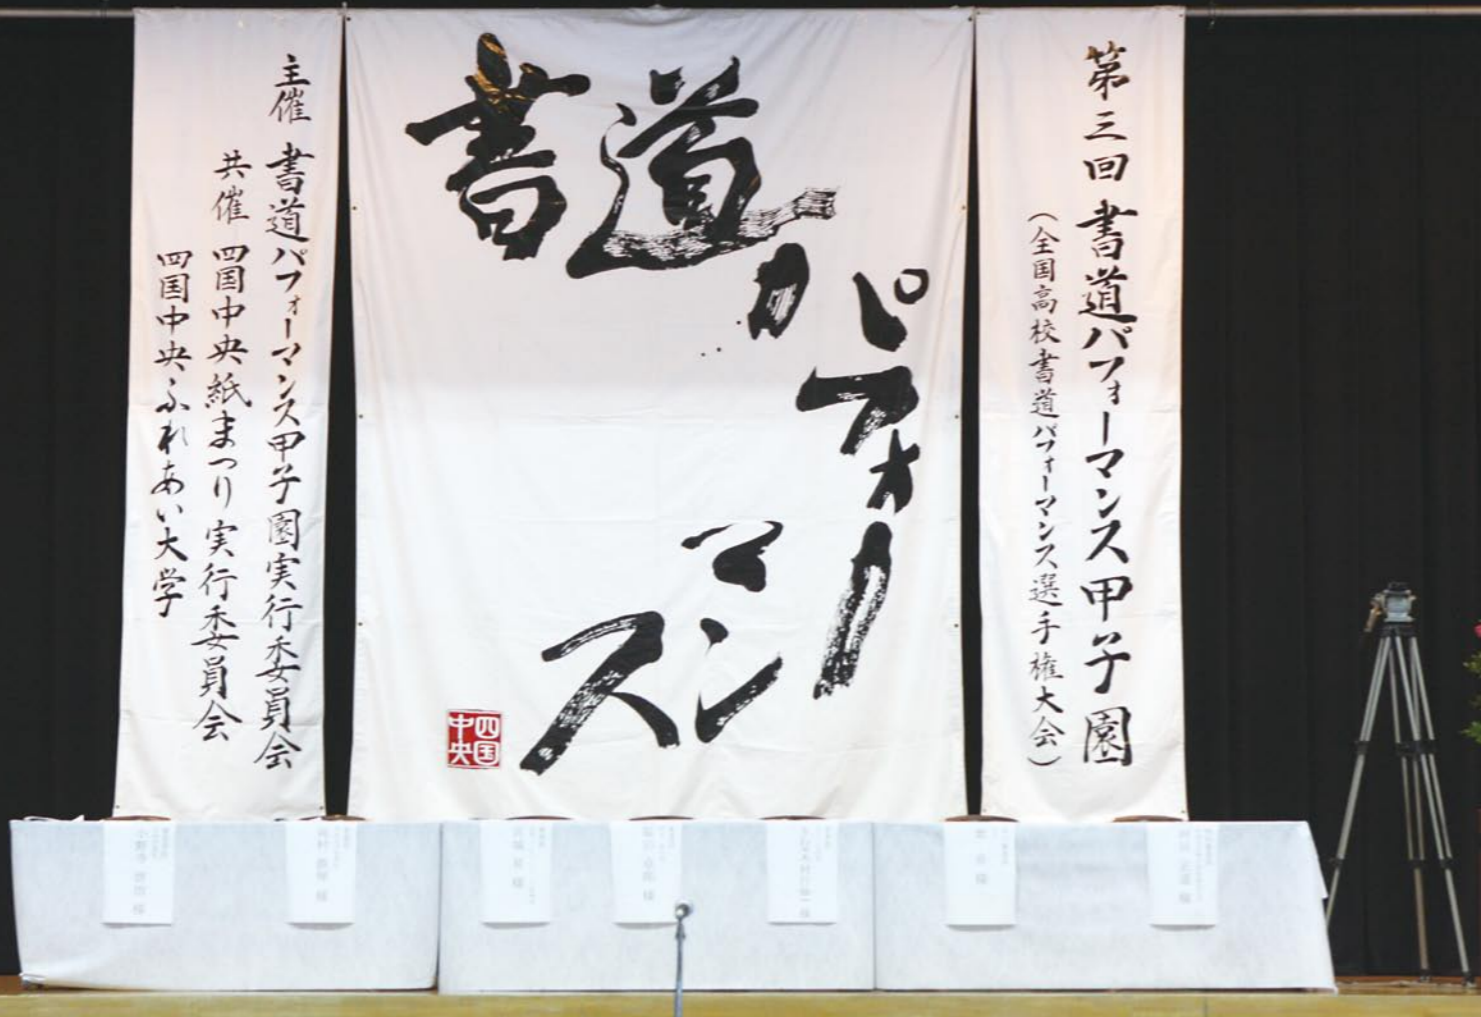 第三回 書道パフォーマンス甲子園
(全国高校書道パフォーマンス選手権大会)
書道
パフォー
マン
ス
四国
中央
主催 書道パフォーマンス甲子園実行委員会
共催 四国中央紙まつり実行委員会
四国中央ふれあい大学